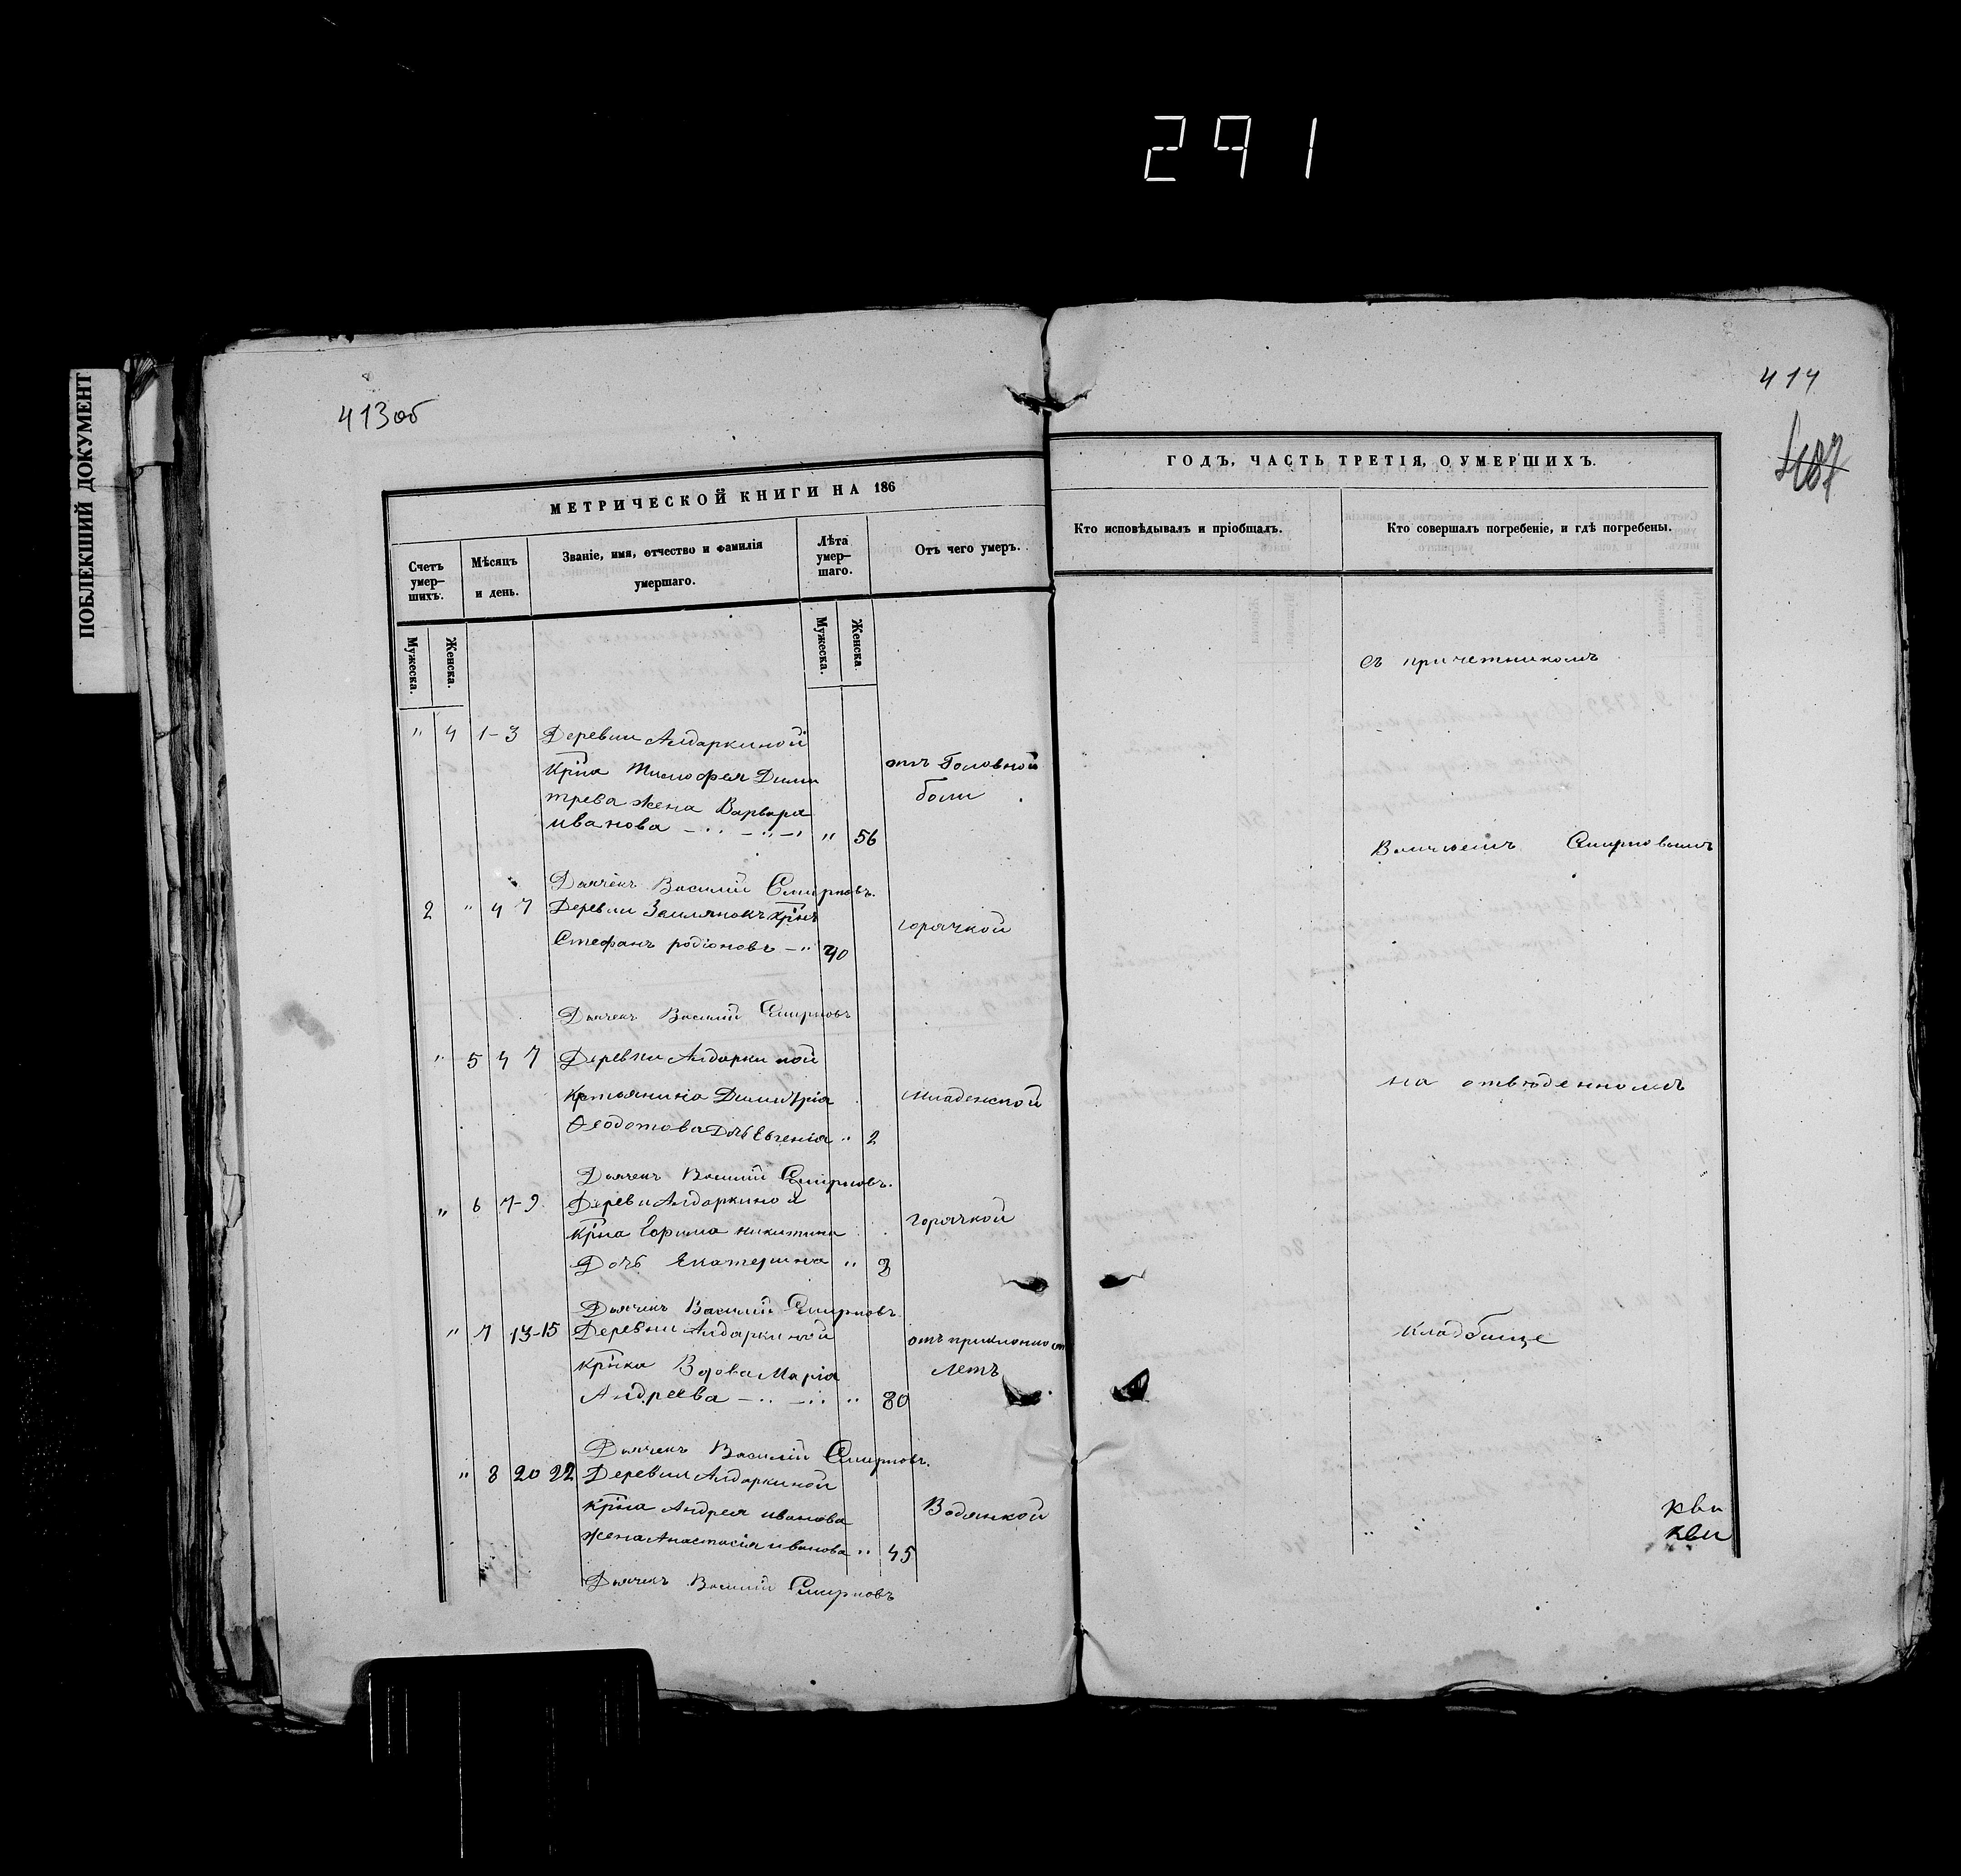 291
ПОБЛЕКШИЙ ДОКУМЕНТ
413об
МЕТРИЧЕСКОЙ КНИГИ НА 186
Счетъ умер-шихъ.
Мѣсяцъ и день.
Званіе, имя, отчество и фамилія умершаго.
Лѣта умер-шаго.
Отъ чего умеръ.
Мужеска.
Женска.
Мужеска.
Женска.
" 4 1-3 Деревни Алдаркиной
Крна Тимофея Дими
отъ Головной
трева жена Варвара
боли
иванова " 56
Дьячекъ Василій Смирновъ.
2 " 4 7 Деревни Землянокъ крнъ
горячкой
Стефанъ родіоновъ 40
Дьячекъ Василій Смирновъ
" 5 4 7 Деревни Алдаркиной
Димитрія
младенской
Ѳеодотова Дочь Евгенія " 2
Дьячекъ Василій Смирновъ.
" 6 7-9 Алдаркиной
Крна никитина
горячкой
Дочь Екатерина " 3
Дьячекъ Василій Смирновъ.
" 7 13-15 Деревни Алдаркиной
отъ
крнка Вдова Марія
летъ
Андреева " 80
Дьячекъ Василій Смирновъ.
" 8 20 22 Деревни Алдаркиной
крна Андрея иванова
Водянкой
жена Анастасія иванова " 45
Дьячекъ Василій Смирновъ
414
407
ГОДЪ, ЧАСТЬ ТРЕТІЯ, О УМЕРШИХЪ.
Кто исповѣдывалъ и пріобщалъ.
Кто совершалъ погребеніе, и гдѣ погребены.
съ причетникомъ
Смирновымъ
на отвѣденномъ
кладбище